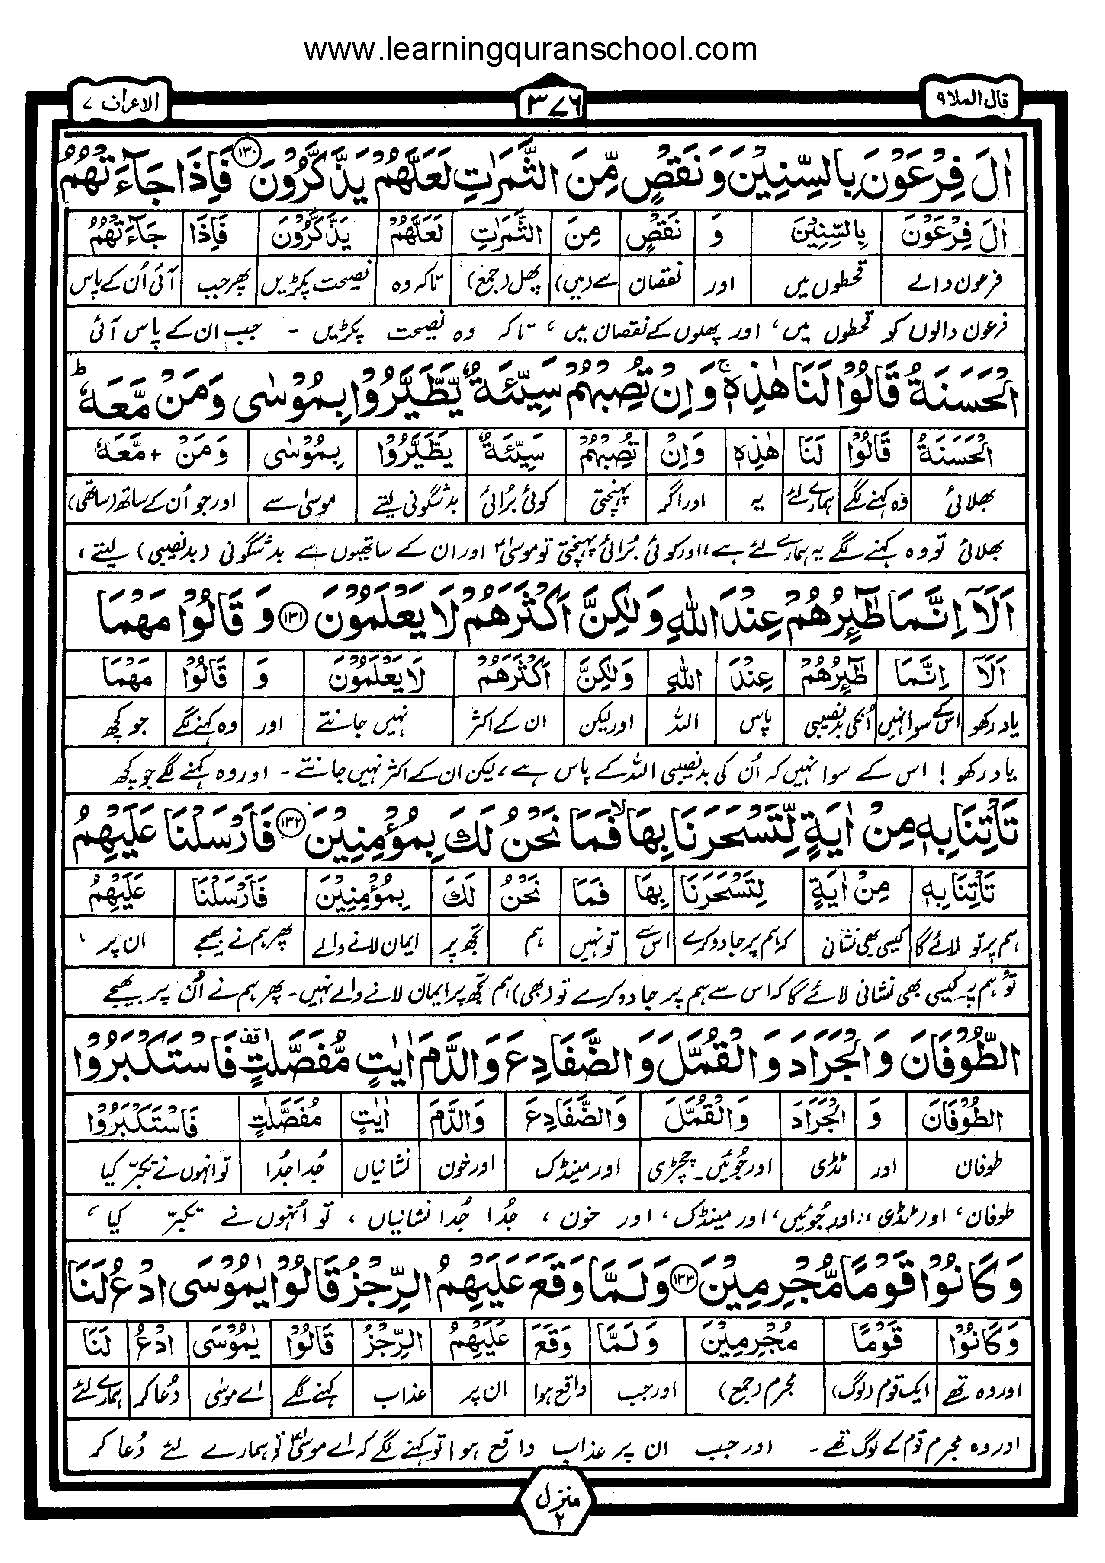 www.learningquranschool.com
قال الملا ٩
٣٧٦
الاعراف ٧
اٰلَ فِرْعَوْنَ بِالسِّنِيْنَ وَنَقْصٍ مِّنَ الثَّمَرٰتِ لَعَلَّهُمْ يَذَّكَّرُوْنَ ۝١٣٠ فَاِذَا جَآءَتْهُمُ
اٰلَ فِرْعَوْنَ بِالسِّنِيْنَ وَ نَقْصٍ مِنَ الثَّمَرٰتِ لَعَلَّهُمْ يَذَّكَّرُوْنَ فَاِذَا جَآءَتْهُمُ
فرعون والے قحطوں میں اور نقصان سے (میں) پھل (جمع) تاکہ وہ نصیحت پکڑیں پھر جب آئی اُن کے پاس
فرعون والوں کو قحطوں میں، اور پھلوں کے نقصان میں، تاکہ وہ نصیحت پکڑیں - جب ان کے پاس آئی
الْحَسَنَةُ قَالُوْا لَنَا هٰذِهٖ ۚ وَاِنْ تُصِبْهُمْ سَيِّئَةٌ يَّطَّيَّرُوْا بِمُوْسٰى وَمَنْ مَّعَهٗ ؕ
الْحَسَنَةُ قَالُوْا لَنَا هٰذِهٖ وَاِنْ تُصِبْهُمْ سَيِّئَةٌ يَطَّيَّرُوْا بِمُوْسٰى وَمَنْ + مَّعَهٗ
بھلائی وہ کہنے لگے ہمارے لئے یہ اور اگر پہنچتی کوئی بُرائی بدشگونی لیتے موسیٰ سے اور جو اُن کے ساتھ (ساتھی)
بھلائی تو وہ کہنے لگے یہ ہمارے لئے ہے، اور کوئی بُرائی پہنچتی تو موسیٰؑ اور ان کے ساتھیوں سے بدشگونی (بدنصیبی) لیتے،
اَلَآ اِنَّمَا طٰٓئِرُهُمْ عِنْدَ اللّٰهِ وَلٰكِنَّ اَكْثَرَهُمْ لَا يَعْلَمُوْنَ ۝١٣١ وَقَالُوْا مَهْمَا
اَلَآ اِنَّمَا طٰٓئِرُهُمْ عِنْدَ اللّٰهِ وَلٰكِنَّ اَكْثَرَهُمْ لَا يَعْلَمُوْنَ وَ قَالُوْا مَهْمَا
یاد رکھو اس کے سوا نہیں اُنکی بدنصیبی پاس اللہ اور لیکن ان کے اکثر نہیں جانتے اور وہ کہنے لگے جو کچھ
یاد رکھو! اس کے سوا نہیں کہ اُن کی بدنصیبی اللہ کے پاس ہے، لیکن ان کے اکثر نہیں جانتے - اور وہ کہنے لگے جو کچھ
تَاْتِنَا بِهٖ مِنْ اٰيَةٍ لِّتَسْحَرَنَا بِهَا ۙ فَمَا نَحْنُ لَكَ بِمُؤْمِنِيْنَ ۝١٣٢ فَاَرْسَلْنَا عَلَيْهِمُ
تَاْتِنَا بِهٖ مِنْ اٰيَةٍ لِتَسْحَرَنَا بِهَا فَمَا نَحْنُ لَكَ بِمُؤْمِنِيْنَ فَاَرْسَلْنَا عَلَيْهِمُ
ہم پر تو لائے گا کیسی بھی نشانی کہ ہم پر جادو کرے اس سے تو نہیں ہم تجھ پر ایمان لانے والے پھر ہم نے بھیجے ان پر
تو ہم پہ کیسی بھی نشانی لائے گا کہ اس سے ہم پر جادو کرے تو (بھی) ہم تجھ پر ایمان لانے والے نہیں - پھر ہم نے اُن پر بھیجے
الطُّوْفَانَ وَالْجَرَادَ وَالْقُمَّلَ وَالضَّفَادِعَ وَالدَّمَ اٰيٰتٍ مُّفَصَّلٰتٍ ۫ قف فَاسْتَكْبَرُوْا
الطُّوْفَانَ وَ الْجَرَادَ وَالْقُمَّلَ وَالضَّفَادِعَ وَالدَّمَ اٰيٰتٍ مُفَصَّلٰتٍ فَاسْتَكْبَرُوْا
طوفان اور ٹڈی اور جُوئیں - چچڑی اور مینڈک اور خون نشانیاں جُدا جُدا تو انہوں نے تکبّر کیا
طوفان، اور ٹڈی، اور جُوئیں، اور مینڈک، اور خون، جُدا جُدا نشانیاں، تو اُنہوں نے تکبّر کیا،
وَكَانُوْا قَوْمًا مُّجْرِمِيْنَ ۝١٣٣ وَلَمَّا وَقَعَ عَلَيْهِمُ الرِّجْزُ قَالُوْا يٰمُوْسَى ادْعُ لَنَا
وَكَانُوْا قَوْمًا مُجْرِمِيْنَ وَلَمَّا وَقَعَ عَلَيْهِمُ الرِّجْزُ قَالُوْا يٰمُوْسَى ادْعُ لَنَا
اور وہ تھے ایک قوم (لوگ) مجرم (جمع) اور جب واقع ہوا ان پر عذاب کہنے لگے اے موسیٰ دُعا کر ہمارے لئے
اور وہ مجرم قوم کے لوگ تھے - اور جب ان پر عذاب واقع ہوا تو کہنے لگے کہ اے موسیٰؑ تو ہمارے لئے دُعا کر
منزل ٢